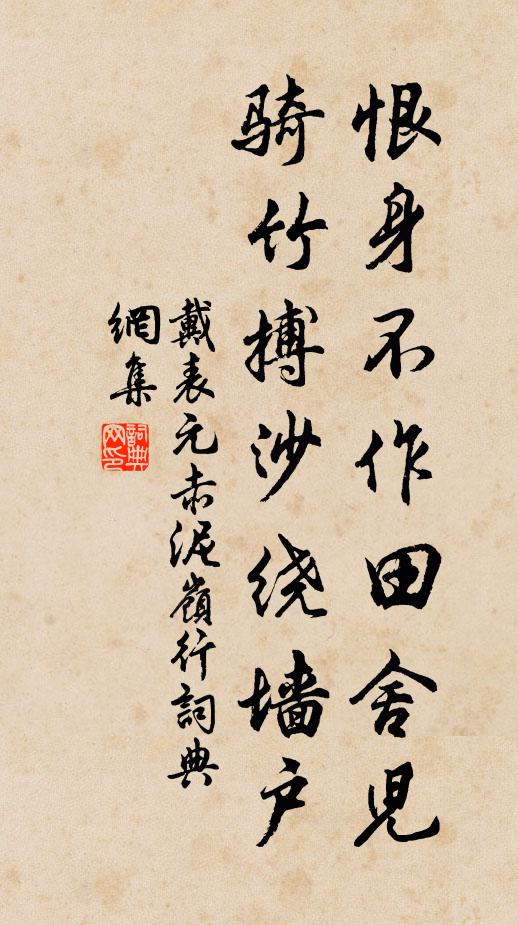 恨身不作田舍児
骑竹搏沙绕墙户
戴表元赤泥嶺行詞典
網集
詞典
网印